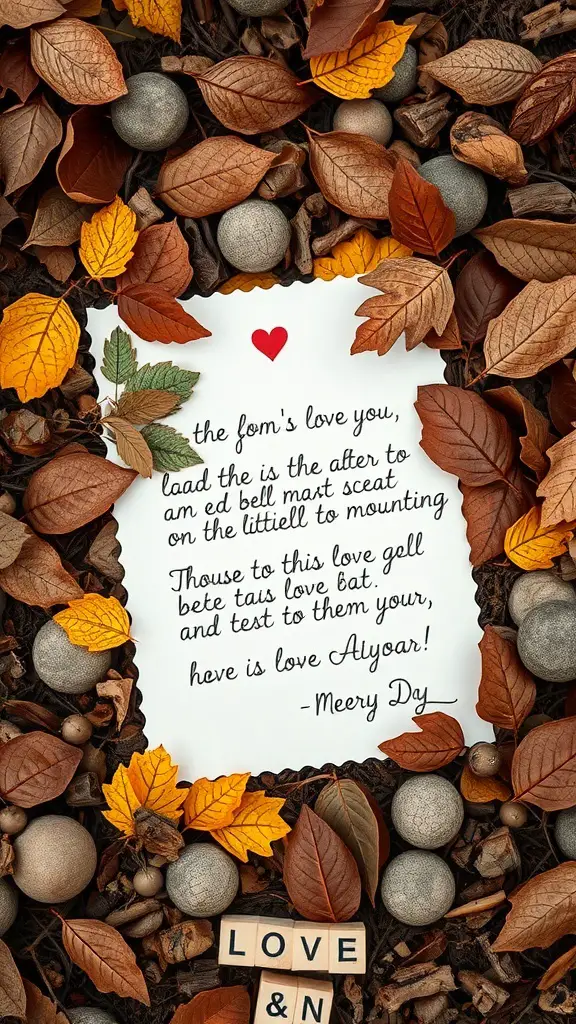 the fom's love you,
laad the is the after to
am ed bell maxt sceat
on the littiell to mounting
Thouse to this love gell
bete tais love bat.
and test to them your,
heve is love Alyoar!
-Meery Dy
LOVE
&N